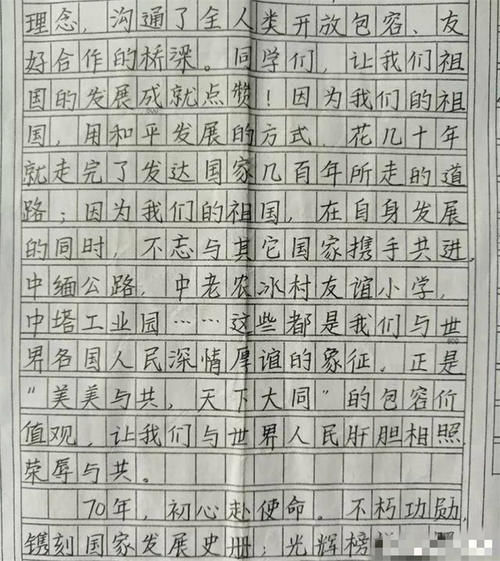 理念，沟通了全人类开放包容、友
好合作的桥梁。同学们，让我们祖
国的发展成就点赞！因为我们的祖
国，用和平发展的方式，花几十年
就走完了发达国家几百年所走的道
路；因为我们的祖国，在自身发展
的同时，不忘与其它国家携手共进，
中缅公路，中老农冰村友谊小学，
中塔工业园……这些都是我们与世
界各国人民深情厚谊的象征。正是
“美美与共，天下大同”的包容价
值观，让我们与世界人民肝胆相照，
荣辱与共。
70年，初心赴使命。不朽功勋，
镌刻国家发展史册；光辉榜